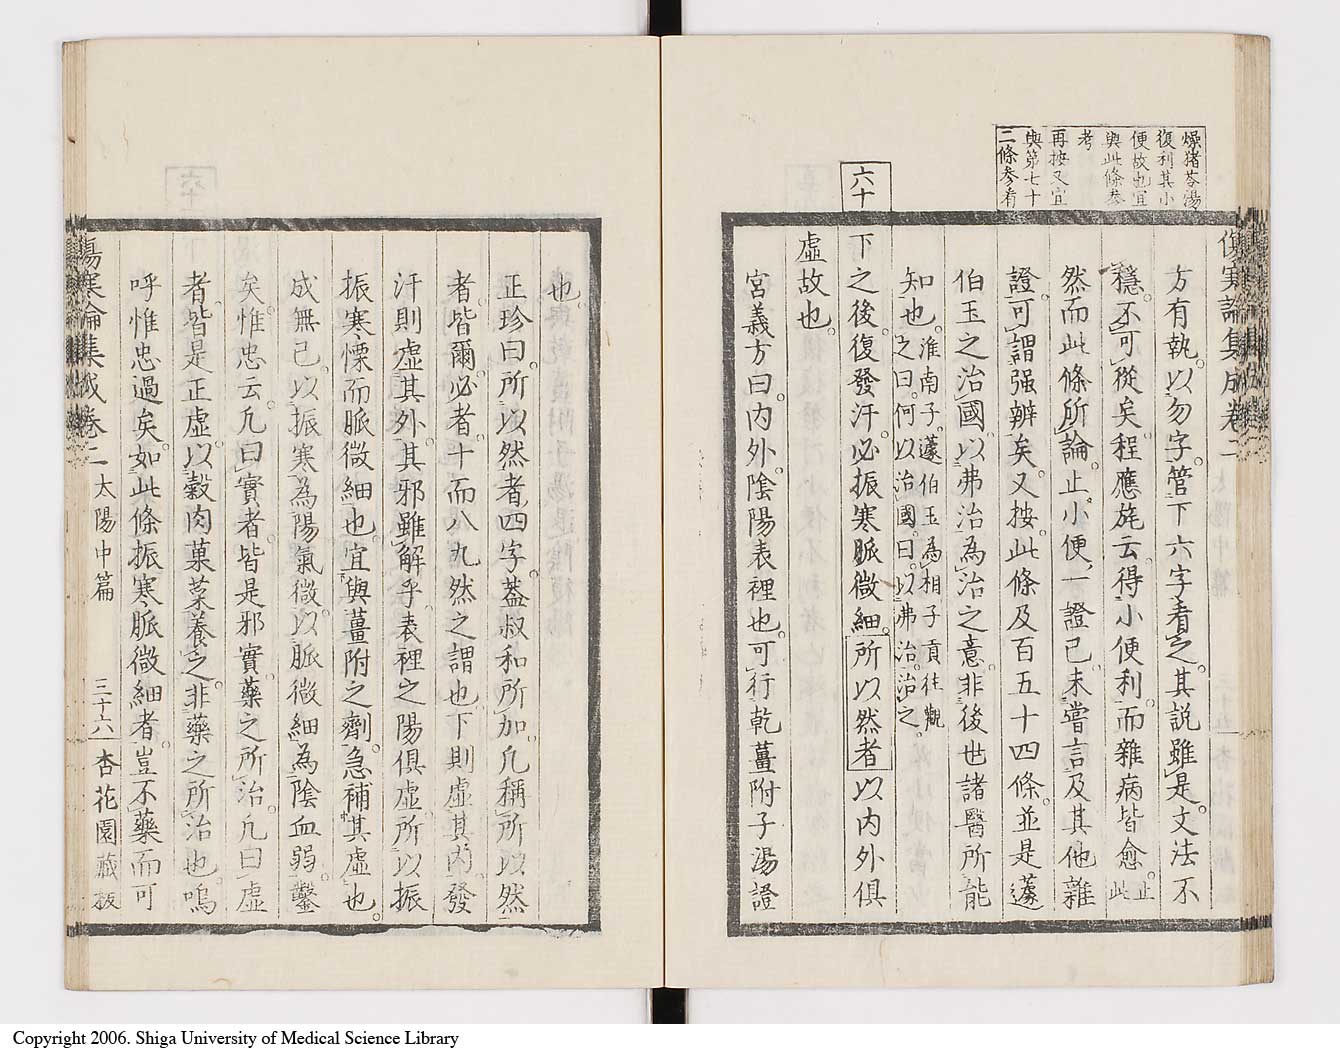 燥猪苓湯
復利其小
便故也宜
與此條參
考
再按又宜
與第七十
二條參看
傷寒論集成卷二
方有執。以勿字管下六字看之。其説雖是。文法不
穩。不可從矣。程應旄云。得小便利。而雜病皆愈。正此
然而此條所論。止小便一證已。未嘗言及其他雜
證。可謂强辨矣。又按。此條及百五十四條。並是蘧
伯玉之治國。以弗治為治之意。非後世諸醫所能
知也。淮南子。蘧伯玉為相。子貢往觀
之曰。何以治國。曰。以弗治治之。
六十
下之後。復發汗。必振寒。脈微細。所以然者以内外俱
虛故也。
宮義方曰。内外。陰陽表裡也。可行乾薑附子湯證
也。
正珍曰。所以然者四字。蓋叔和所加。凡稱所以然
者。皆爾。必者。十而八九然之謂也。下則虛其内。發
汗則虛其外。其邪雖解乎。表裡之陽俱虛。所以振
振寒慄而脈微細也。宜與薑附之劑。急補其虛也。
成無己。以振寒為陽氣微。以脈微細為陰血弱。鑿
矣。惟忠云。凡曰實者。皆是邪實。藥之所治。凡曰虛
者。皆是正虛。以穀肉菓菜養之。非藥之所治也。嗚
呼惟忠過矣。如此條振寒脈微細者。豈不藥而可
傷寒論集成卷二 太陽中篇 三十六 杏花園藏板